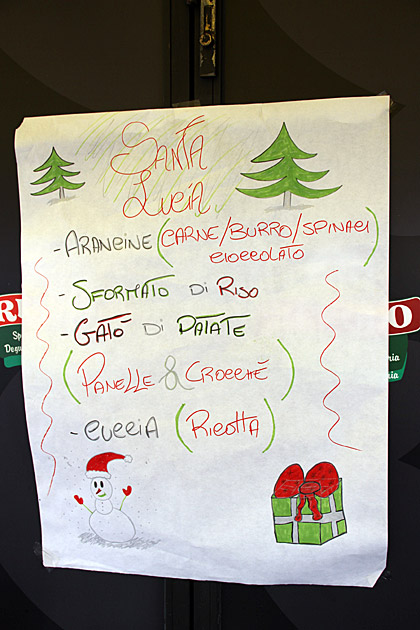 SANTA
LUCIA
- ARANCINE (CARNE/BURRO/SPINACI
CIOCCOLATO)
- SFORMATO DI RISO
- GATÒ DI PATATE
(PANELLE & CROCCHÈ)
- CUCCIA (RICOTTA)